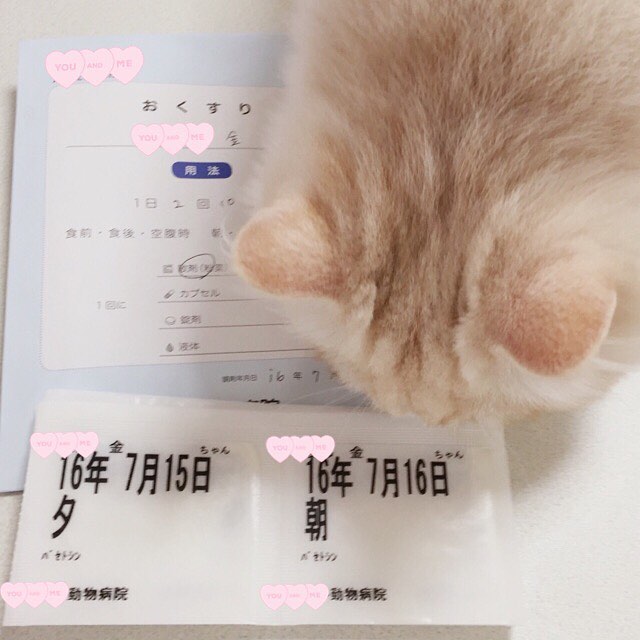 YOU AND ME
おくすり
YOU AND ME
金
用法
1日 2 回 10
食前・食後・空腹時 朝・
散剤(粉薬)
1回に
カプセル
錠剤
液体
調剤年月日 16 年 7
YOU AND ME
金 ちゃん
16年 7月15日
夕
パセトシン
YOU AND ME 動物病院
YOU AND ME
ちゃん
16年 7月16日
朝
パセトシン
YOU AND ME 動物病院